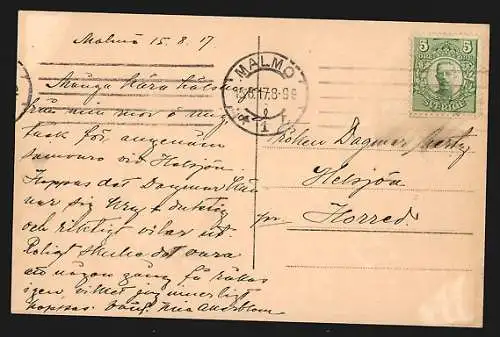 Malmö 15.8.17
Många kära hälsn
från min mor o mig
tack för angenäm
samvaro vid Helsjön.
Hoppas det Dagmar kän
ner sig kry + duktig
och riktigt vilar ut.
Roligt skulle det vara
att någon gång få råkas
igen vilket jag innerligt
hoppas.
MALMÖ
15.8.17.8-9
1
5 ÖRE 5
SVERIGE
Fröken Dagmar
Helsjön
pr Horred.